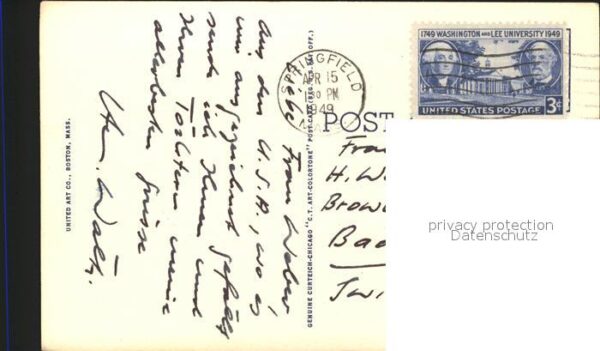 1749 WASHINGTON AND LEE UNIVERSITY 1949
UNITED STATES POSTAGE 3¢
SPRINGFIELD
APR 15
PM
1949
POST
Frau
H. W
Brow
Bad
Swi
privacy protection
Datenschutz
Liebe Frau Weber
Aus den U.S.A., wo es
mir ausgezeichnet gefällt
sende ich Ihnen und
Ihren Töchtern meine
allerbesten Grüsse
UNITED ART CO., BOSTON, MASS.
GENUINE CURTEICH-CHICAGO "C.T. ART-COLORTONE" POST CARD (REG. U.S. PAT. OFF.)